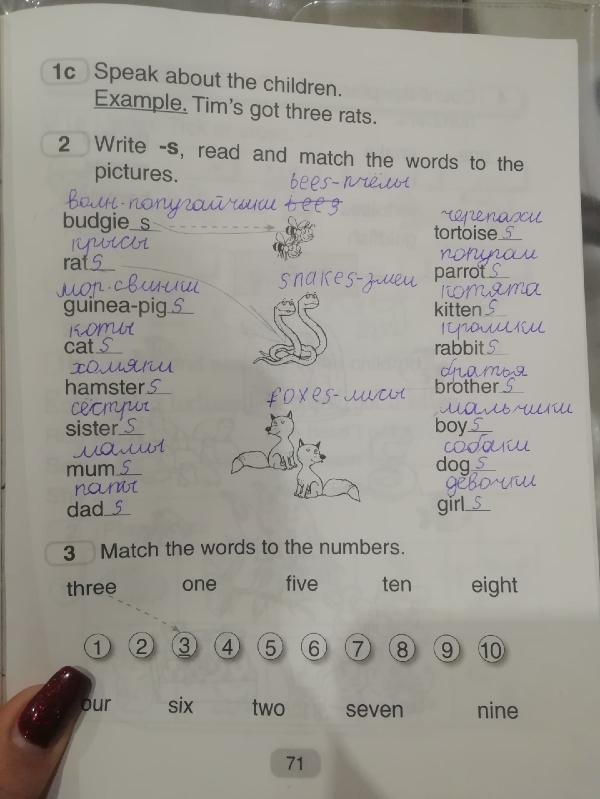 1c Speak about the children.
Example. Tim's got three rats.
2 Write -s, read and match the words to the
pictures.
bees-пчёлы
волн.-попугайчики bees
budgie s
крысы
rat s
мор.свинки
guinea-pig s
коты
cat s
хомяки
hamster s
сёстры
sister s
мамы
mum s
папы
dad s
snakes-змеи
foxes-лисы
черепахи
tortoise s
попугаи
parrot s
котята
kitten s
кролики
rabbit s
братья
brother s
мальчики
boy s
собаки
dog s
девочки
girl s
3 Match the words to the numbers.
three one five ten eight
1 2 3 4 5 6 7 8 9 10
our six two seven nine
71